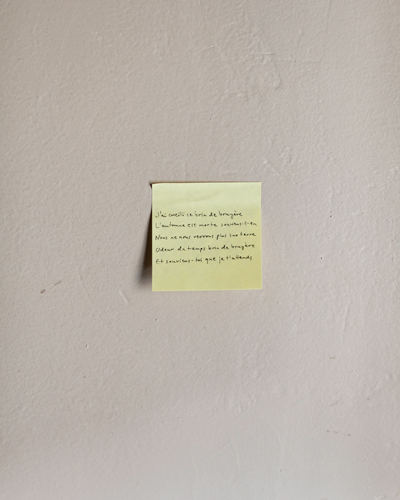 J'ai cueilli ce brin de bruyère
L'automne est morte souviens-t-en
Nous ne nous verrons plus sur terre
Odeur du temps brin de bruyère
Et souviens-toi que je t'attends